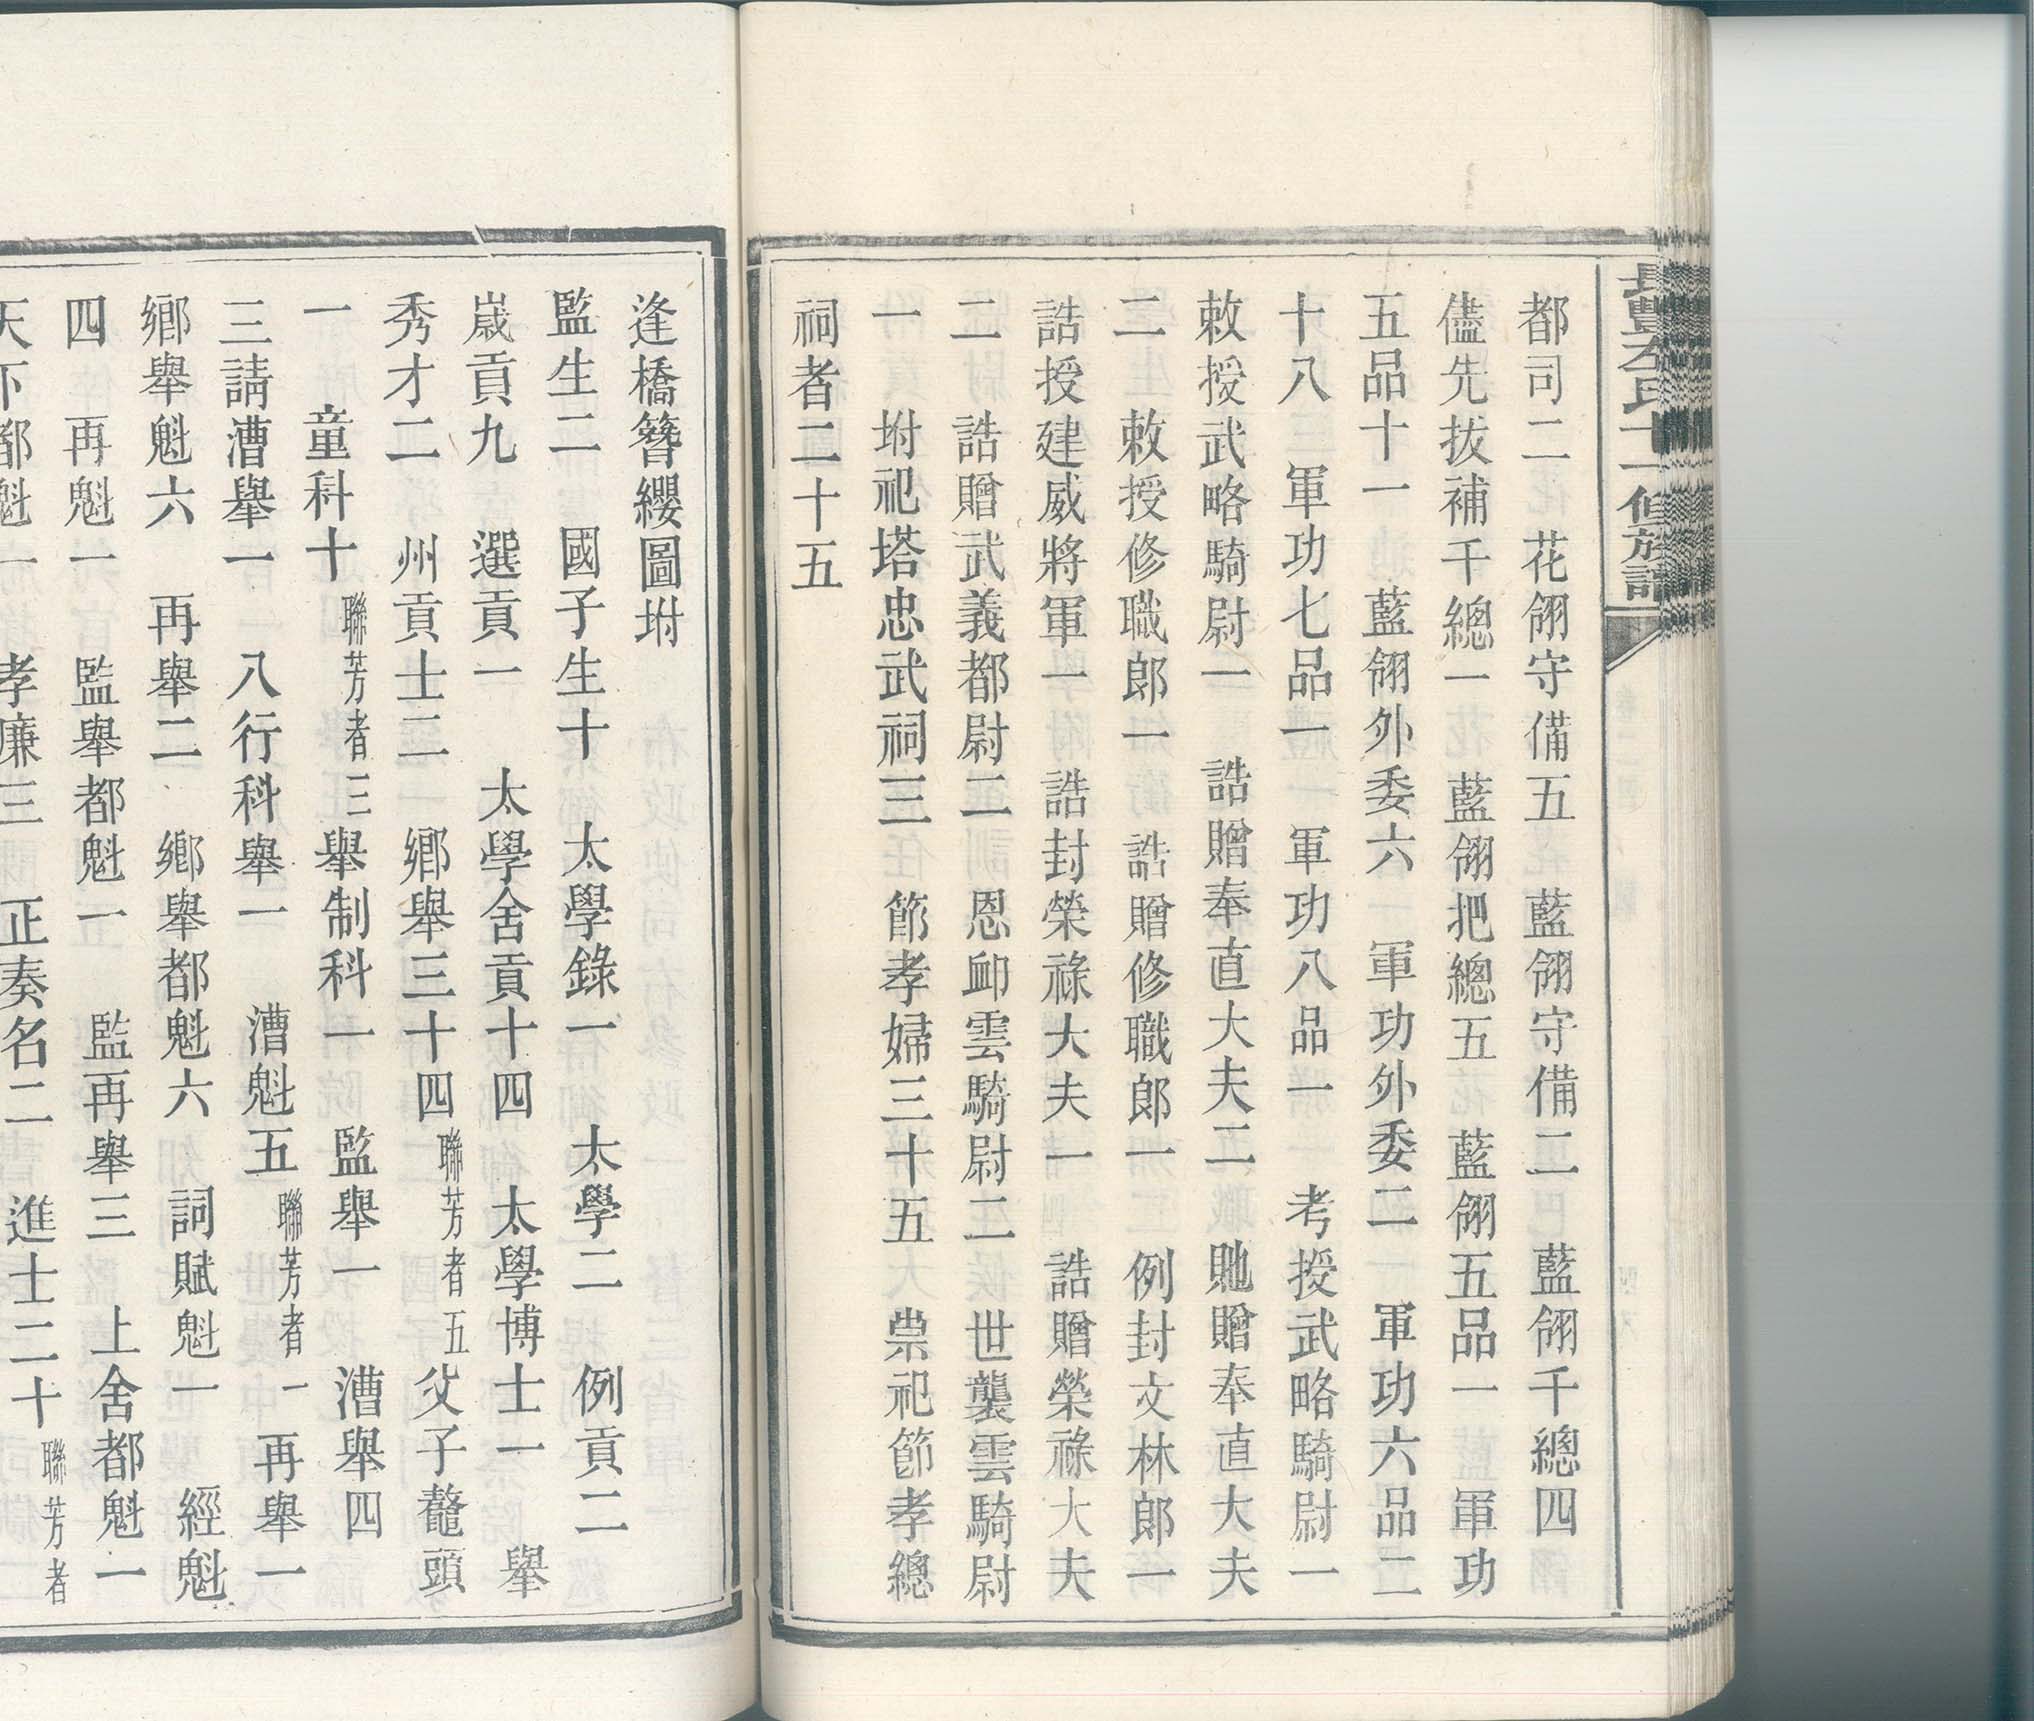 長豐李氏十一修族譜
都司二　花翎守備五　藍翎守備二　藍翎千總四
儘先拔補千總一　藍翎把總五　藍翎五品一　軍功
五品十一　藍翎外委六　軍功外委二　軍功六品二
十八　軍功七品一　軍功八品一　考授武略騎尉一
敕授武略騎尉一　誥贈奉直大夫二　貤贈奉直大夫
二　敕授修職郎一　誥贈修職郎一　例封文林郎一
誥授建威將軍一　誥封榮祿大夫一　誥贈榮祿大夫
二　誥贈武義都尉二　恩卹雲騎尉二　世襲雲騎尉
一　坿祀塔忠武祠三　節孝婦三十五　祟祀節孝總
祠者二十五
逢橋簪纓圖坿
監生二　國子生十　太學錄一　太學二　例貢二
歲貢九　選貢一　太學舍貢十四　太學博士一　舉
秀才二　州貢士二　鄉舉三十四聯芳者五　父子鼇頭
一　童科十聯芳者三　舉制科一　監舉一　漕舉四
三請漕舉一　八行科舉一　漕魁五聯芳者一　再舉一
鄉舉魁六　再舉二　鄉舉都魁六　詞賦魁一　經魁
四　再魁一　監舉都魁一　監再舉三　上舍都魁一
天下都魁一　孝廉三　正奏名二　進士二十聯芳者